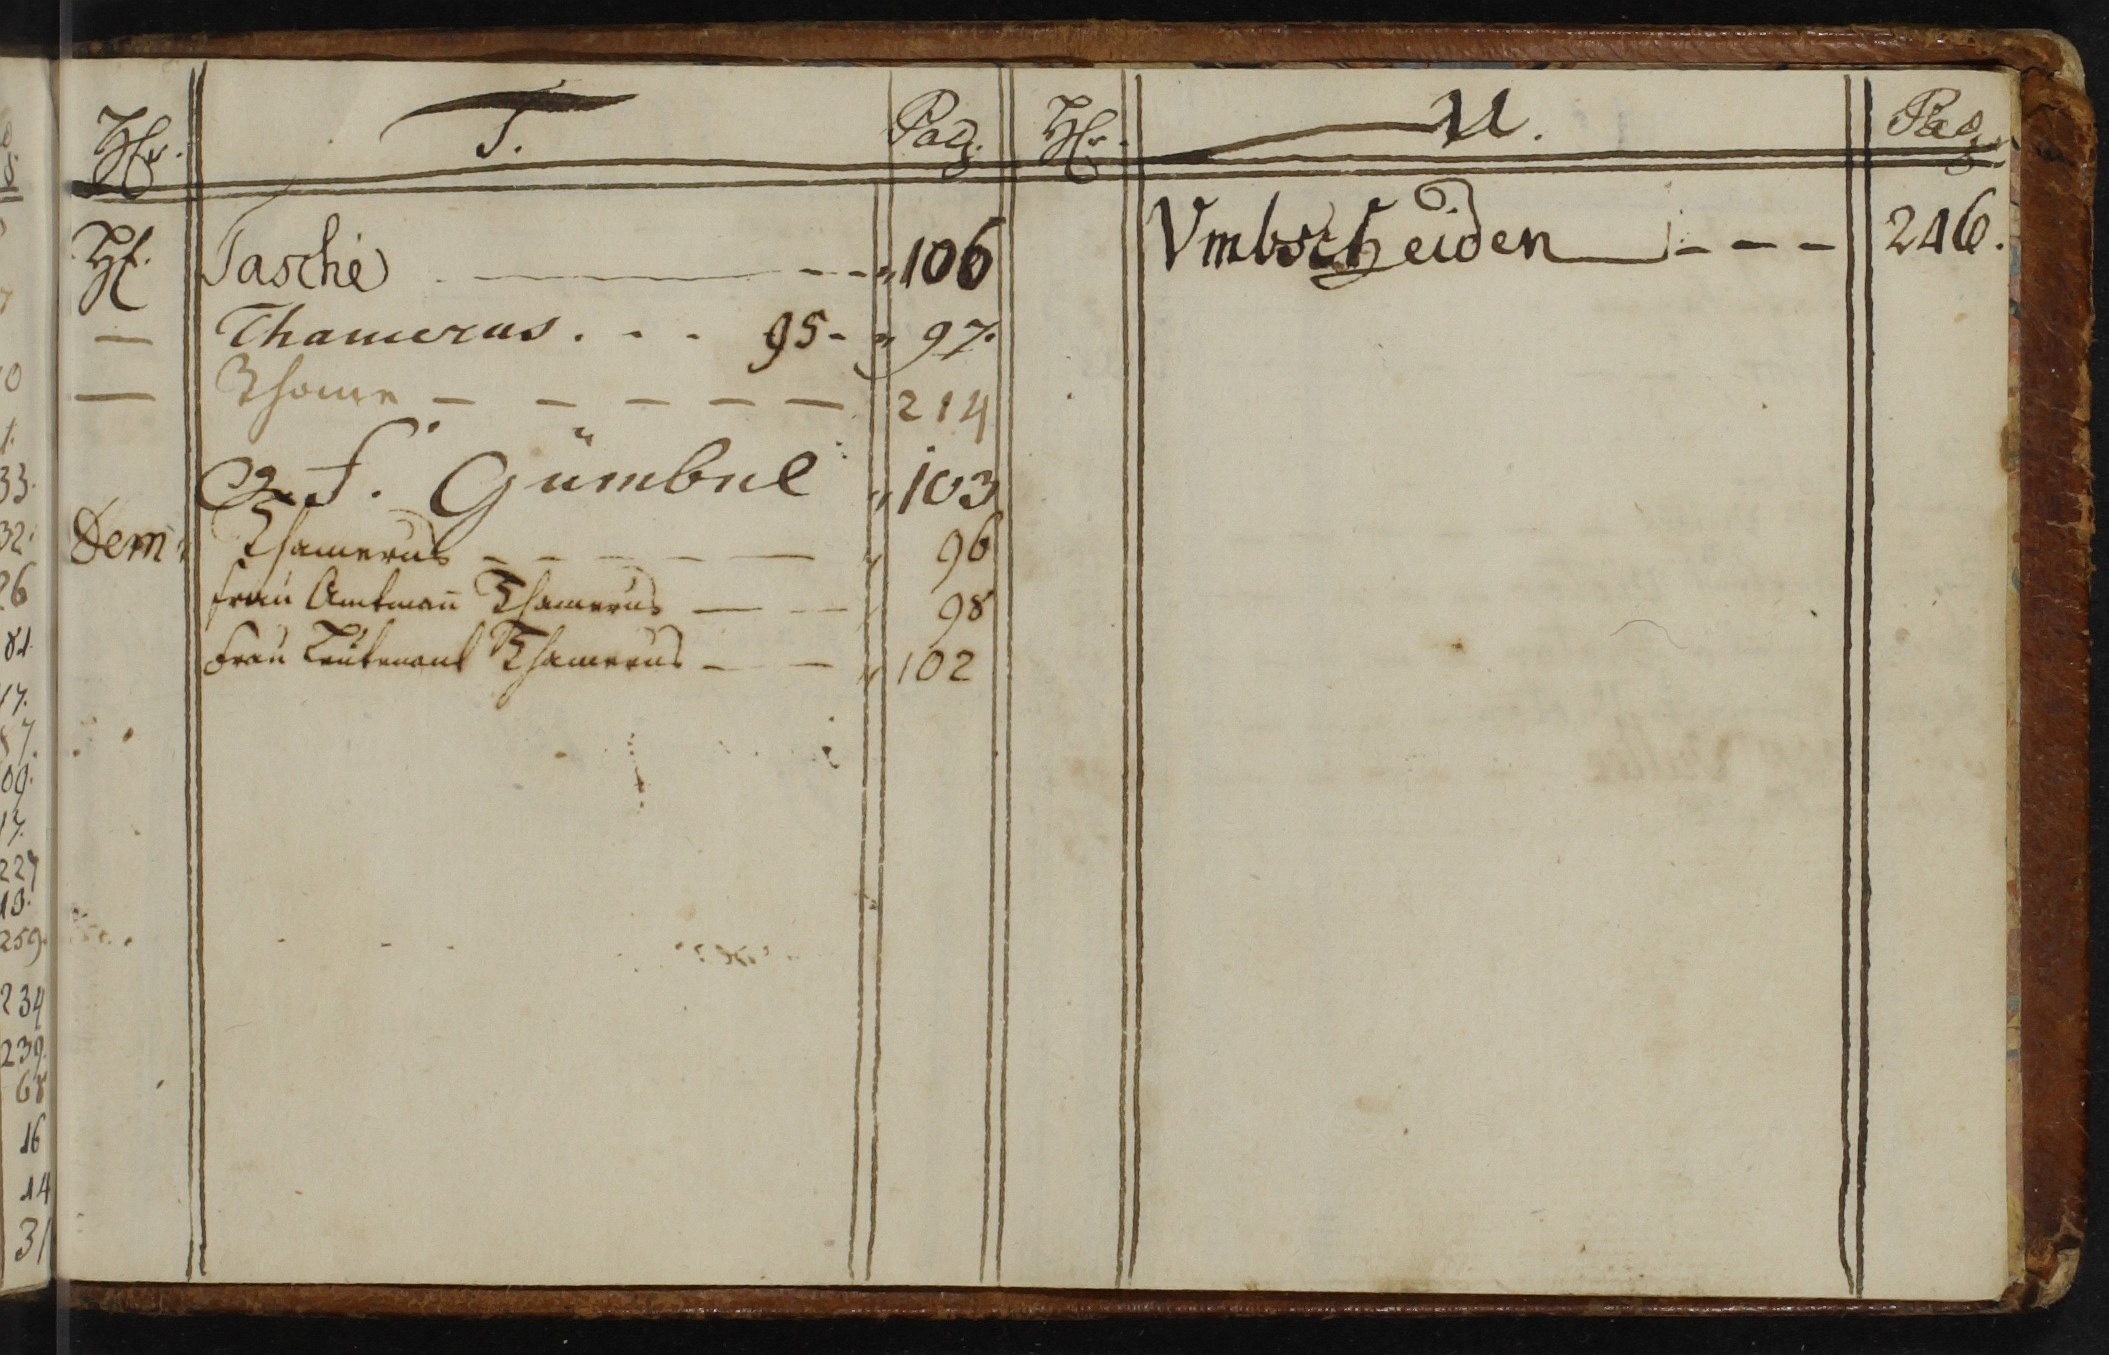 Hr. T. Pag.
H. Tasché 106
— Thamerus . - - 95 - 97.
— Thome — — — — — 214
F. Gümbel 103
Dem. Thamerus — — — — 96
Frau Amtmañ Thamerus — — 98
Frau Leutenant Thamerus — — 102
Hr. U. Pag
Vmbscheiden - - - 246.
33.
32.
26
81.
17.
87.
09.
13.
227
13.
259.
234
239.
68
16
14
31